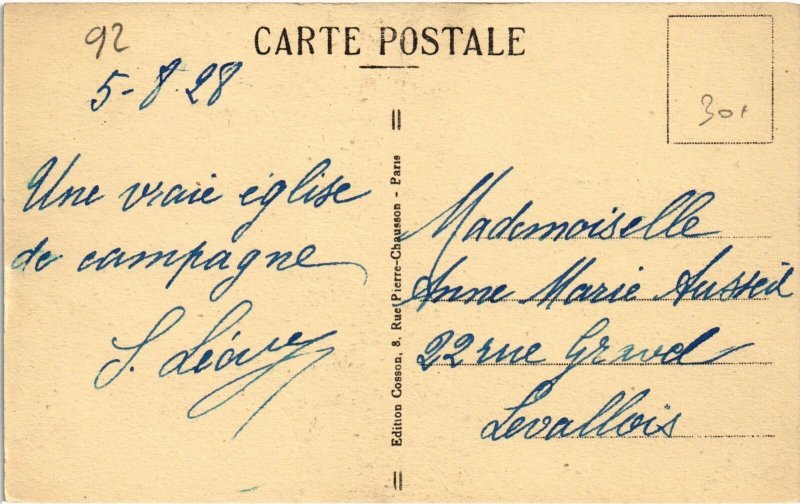 92
CARTE POSTALE
5-8.28
301
Une vraie église
de campagne
Edition Cosson, 8, Rue Pierre-Chausson - Paris
Mademoiselle
Anne Marie Ausseil
22 rue Gravel
Levallois